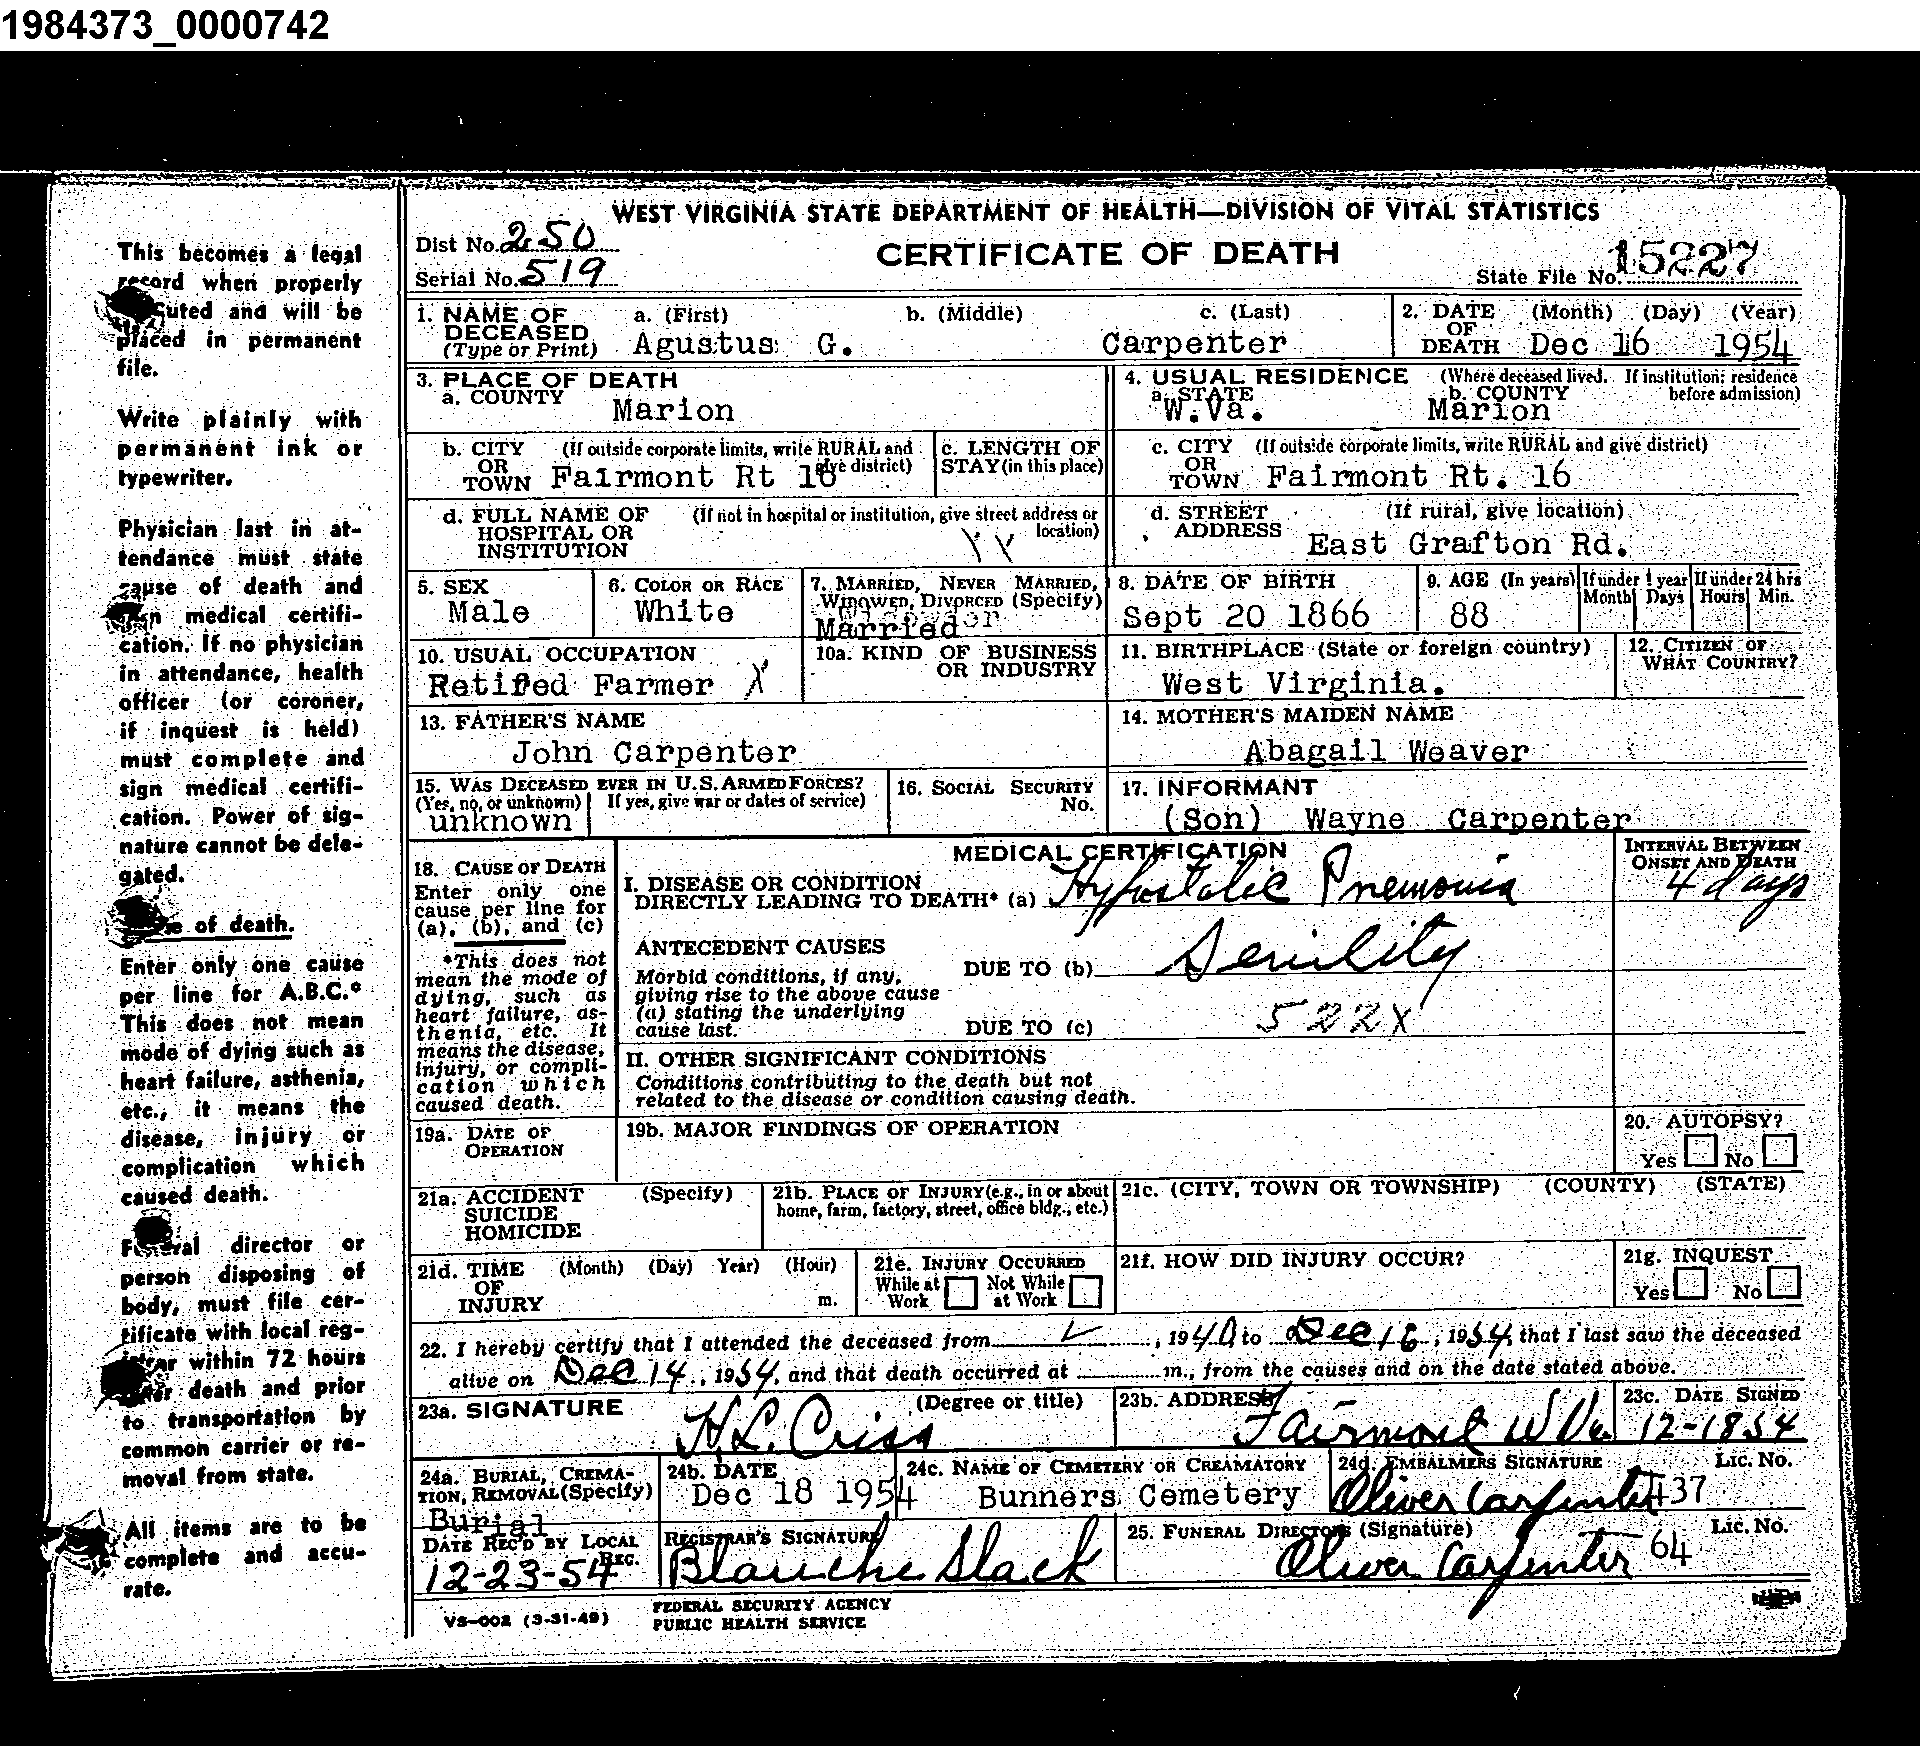 1984373_0000742
WEST VIRGINIA STATE DEPARTMENT OF HEALTH—DIVISION OF VITAL STATISTICS
Dist No. 250
CERTIFICATE OF DEATH
Serial No. 519
State File No. 15227
1. NAME OF DECEASED (Type or Print) a. (First) b. (Middle) c. (Last)
Agustus G. Carpenter
2. DATE OF DEATH (Month) (Day) (Year)
Dec 16 1954
3. PLACE OF DEATH
a. COUNTY Marion
4. USUAL RESIDENCE (Where deceased lived. If institution: residence before admission)
a. STATE W.Va. b. COUNTY Marion
b. CITY OR TOWN (If outside corporate limits, write RURAL and give district)
Fairmont Rt 16
c. LENGTH OF STAY (in this place)
c. CITY OR TOWN (If outside corporate limits, write RURAL and give district)
Fairmont Rt. 16
d. FULL NAME OF HOSPITAL OR INSTITUTION (If not in hospital or institution, give street address or location)
d. STREET ADDRESS (If rural, give location)
East Grafton Rd.
5. SEX
Male
6. COLOR OR RACE
White
7. MARRIED, NEVER MARRIED, WIDOWED, DIVORCED (Specify)
Married
8. DATE OF BIRTH
Sept 20 1866
9. AGE (In years) If under 1 year Month Days If under 24 hrs Hours Min.
88
10. USUAL OCCUPATION
Retired Farmer X
10a. KIND OF BUSINESS OR INDUSTRY
11. BIRTHPLACE (State or foreign country)
West Virginia.
12. CITIZEN OF WHAT COUNTRY?
13. FATHER'S NAME
John Carpenter
14. MOTHER'S MAIDEN NAME
Abagail Weaver
15. WAS DECEASED EVER IN U.S. ARMED FORCES?
(Yes, no, or unknown) If yes, give war or dates of service)
unknown
16. SOCIAL SECURITY No.
17. INFORMANT
(Son) Wayne Carpenter
18. CAUSE OF DEATH
Enter only one cause per line for (a), (b), and (c)
*This does not mean the mode of dying, such as heart failure, asthenia, etc. It means the disease, injury, or complication which caused death.
MEDICAL CERTIFICATION
INTERVAL BETWEEN ONSET AND DEATH
I. DISEASE OR CONDITION DIRECTLY LEADING TO DEATH* (a) Hypostatic Pnemonia 4 days
ANTECEDENT CAUSES
Morbid conditions, if any, giving rise to the above cause (a) stating the underlying cause last.
DUE TO (b) Senility
DUE TO (c) 522X
II. OTHER SIGNIFICANT CONDITIONS
Conditions contributing to the death but not related to the disease or condition causing death.
19a. DATE OF OPERATION
19b. MAJOR FINDINGS OF OPERATION
20. AUTOPSY?
Yes No
21a. ACCIDENT SUICIDE HOMICIDE (Specify)
21b. PLACE OF INJURY (e.g., in or about home, farm, factory, street, office bldg., etc.)
21c. (CITY, TOWN OR TOWNSHIP) (COUNTY) (STATE)
21d. TIME OF INJURY (Month) (Day) Year) (Hour) m.
21e. INJURY OCCURRED
While at Work Not While at Work
21f. HOW DID INJURY OCCUR?
21g. INQUEST
Yes No
22. I hereby certify that I attended the deceased from , 1940 to Dec 16, 1954, that I last saw the deceased
alive on Dec 14, 1954, and that death occurred at m., from the causes and on the date stated above.
23a. SIGNATURE (Degree or title)
H.L. Criss
23b. ADDRESS
Fairmont W Va.
23c. DATE SIGNED
12-18 54
24a. BURIAL, CREMATION, REMOVAL (Specify)
Burial
24b. DATE
Dec 18 1954
24c. NAME OF CEMETERY OR CREAMATORY
Bunners Cemetery
24d. EMBALMERS SIGNATURE Lic. No.
Oliver Carpenter 437
DATE REC'D BY LOCAL REG.
12-23-54
REGISTRAR'S SIGNATURE
Blanche Slack
25. FUNERAL DIRECTORS (Signature) Lic. No.
Oliver Carpenter 64
VS-002 (3-31-49)
FEDERAL SECURITY AGENCY
PUBLIC HEALTH SERVICE
This becomes a legal
record when properly
executed and will be
placed in permanent
file.
Write plainly with
permanent ink or
typewriter.
Physician last in at-
tendance must state
cause of death and
sign medical certifi-
cation. If no physician
in attendance, health
officer (or coroner,
if inquest is held)
must complete and
sign medical certifi-
cation. Power of sig-
nature cannot be dele-
gated.
of death.
Enter only one cause
per line for A.B.C.*
This does not mean
mode of dying such as
heart failure, asthenia,
etc., it means the
disease, injury or
complication which
caused death.
Funeral director or
person disposing of
body, must file cer-
tificate with local reg-
istrar within 72 hours
after death and prior
to transportation by
common carrier or re-
moval from state.
All items are to be
complete and accu-
rate.